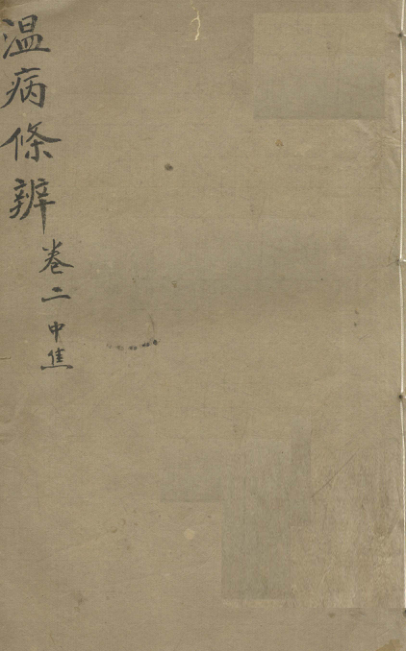 温病條辨 卷二 中焦